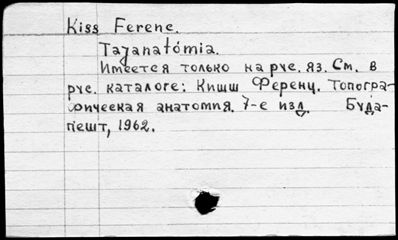 Kiss Ferenc.
Tajanatómia.
Имеется только на рус. яз. См. в
рус. каталоге: Кишш Ференц. Топогра-
фическая анатомия. 7-е изд. Буда-
пешт, 1962.